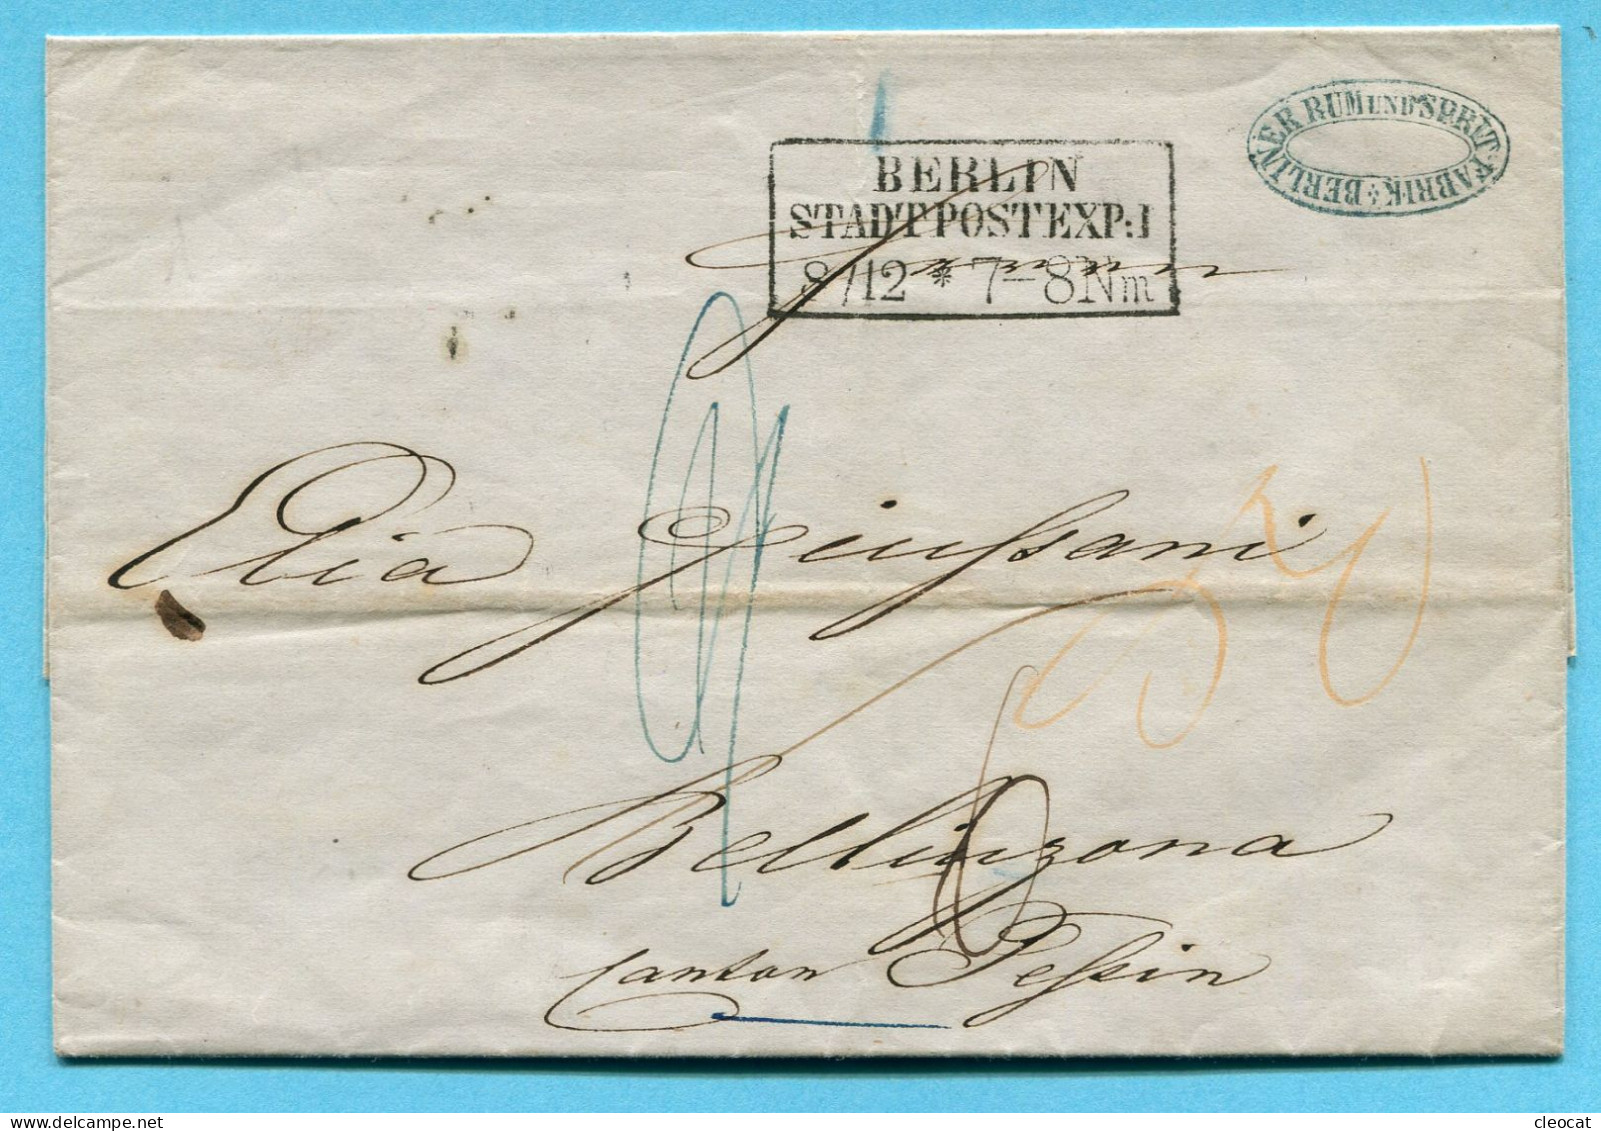 BERLINER RUM UND SPRIT-FABRIK
BERLIN
STADTPOSTEXP:I
8/12 * 7-8Nm
Elia Giussani
Bellinzona
Canton Tessin
delcampe.net
cleocat